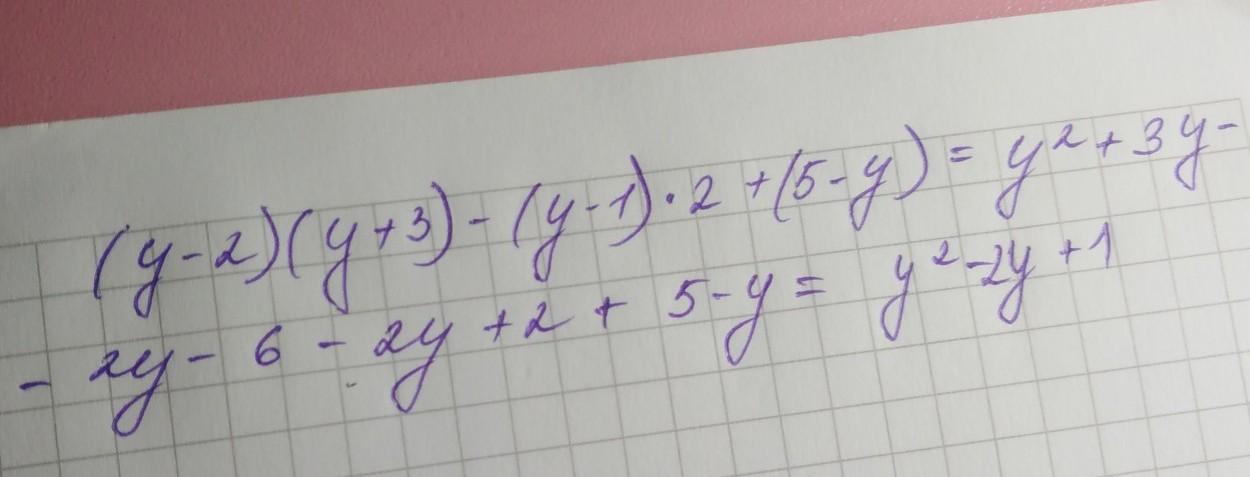 (y-2)(y+3)-(y-1)·2+(5-y)=y²+3y-
-2y-6-2y+2+5-y=y²-2y+1